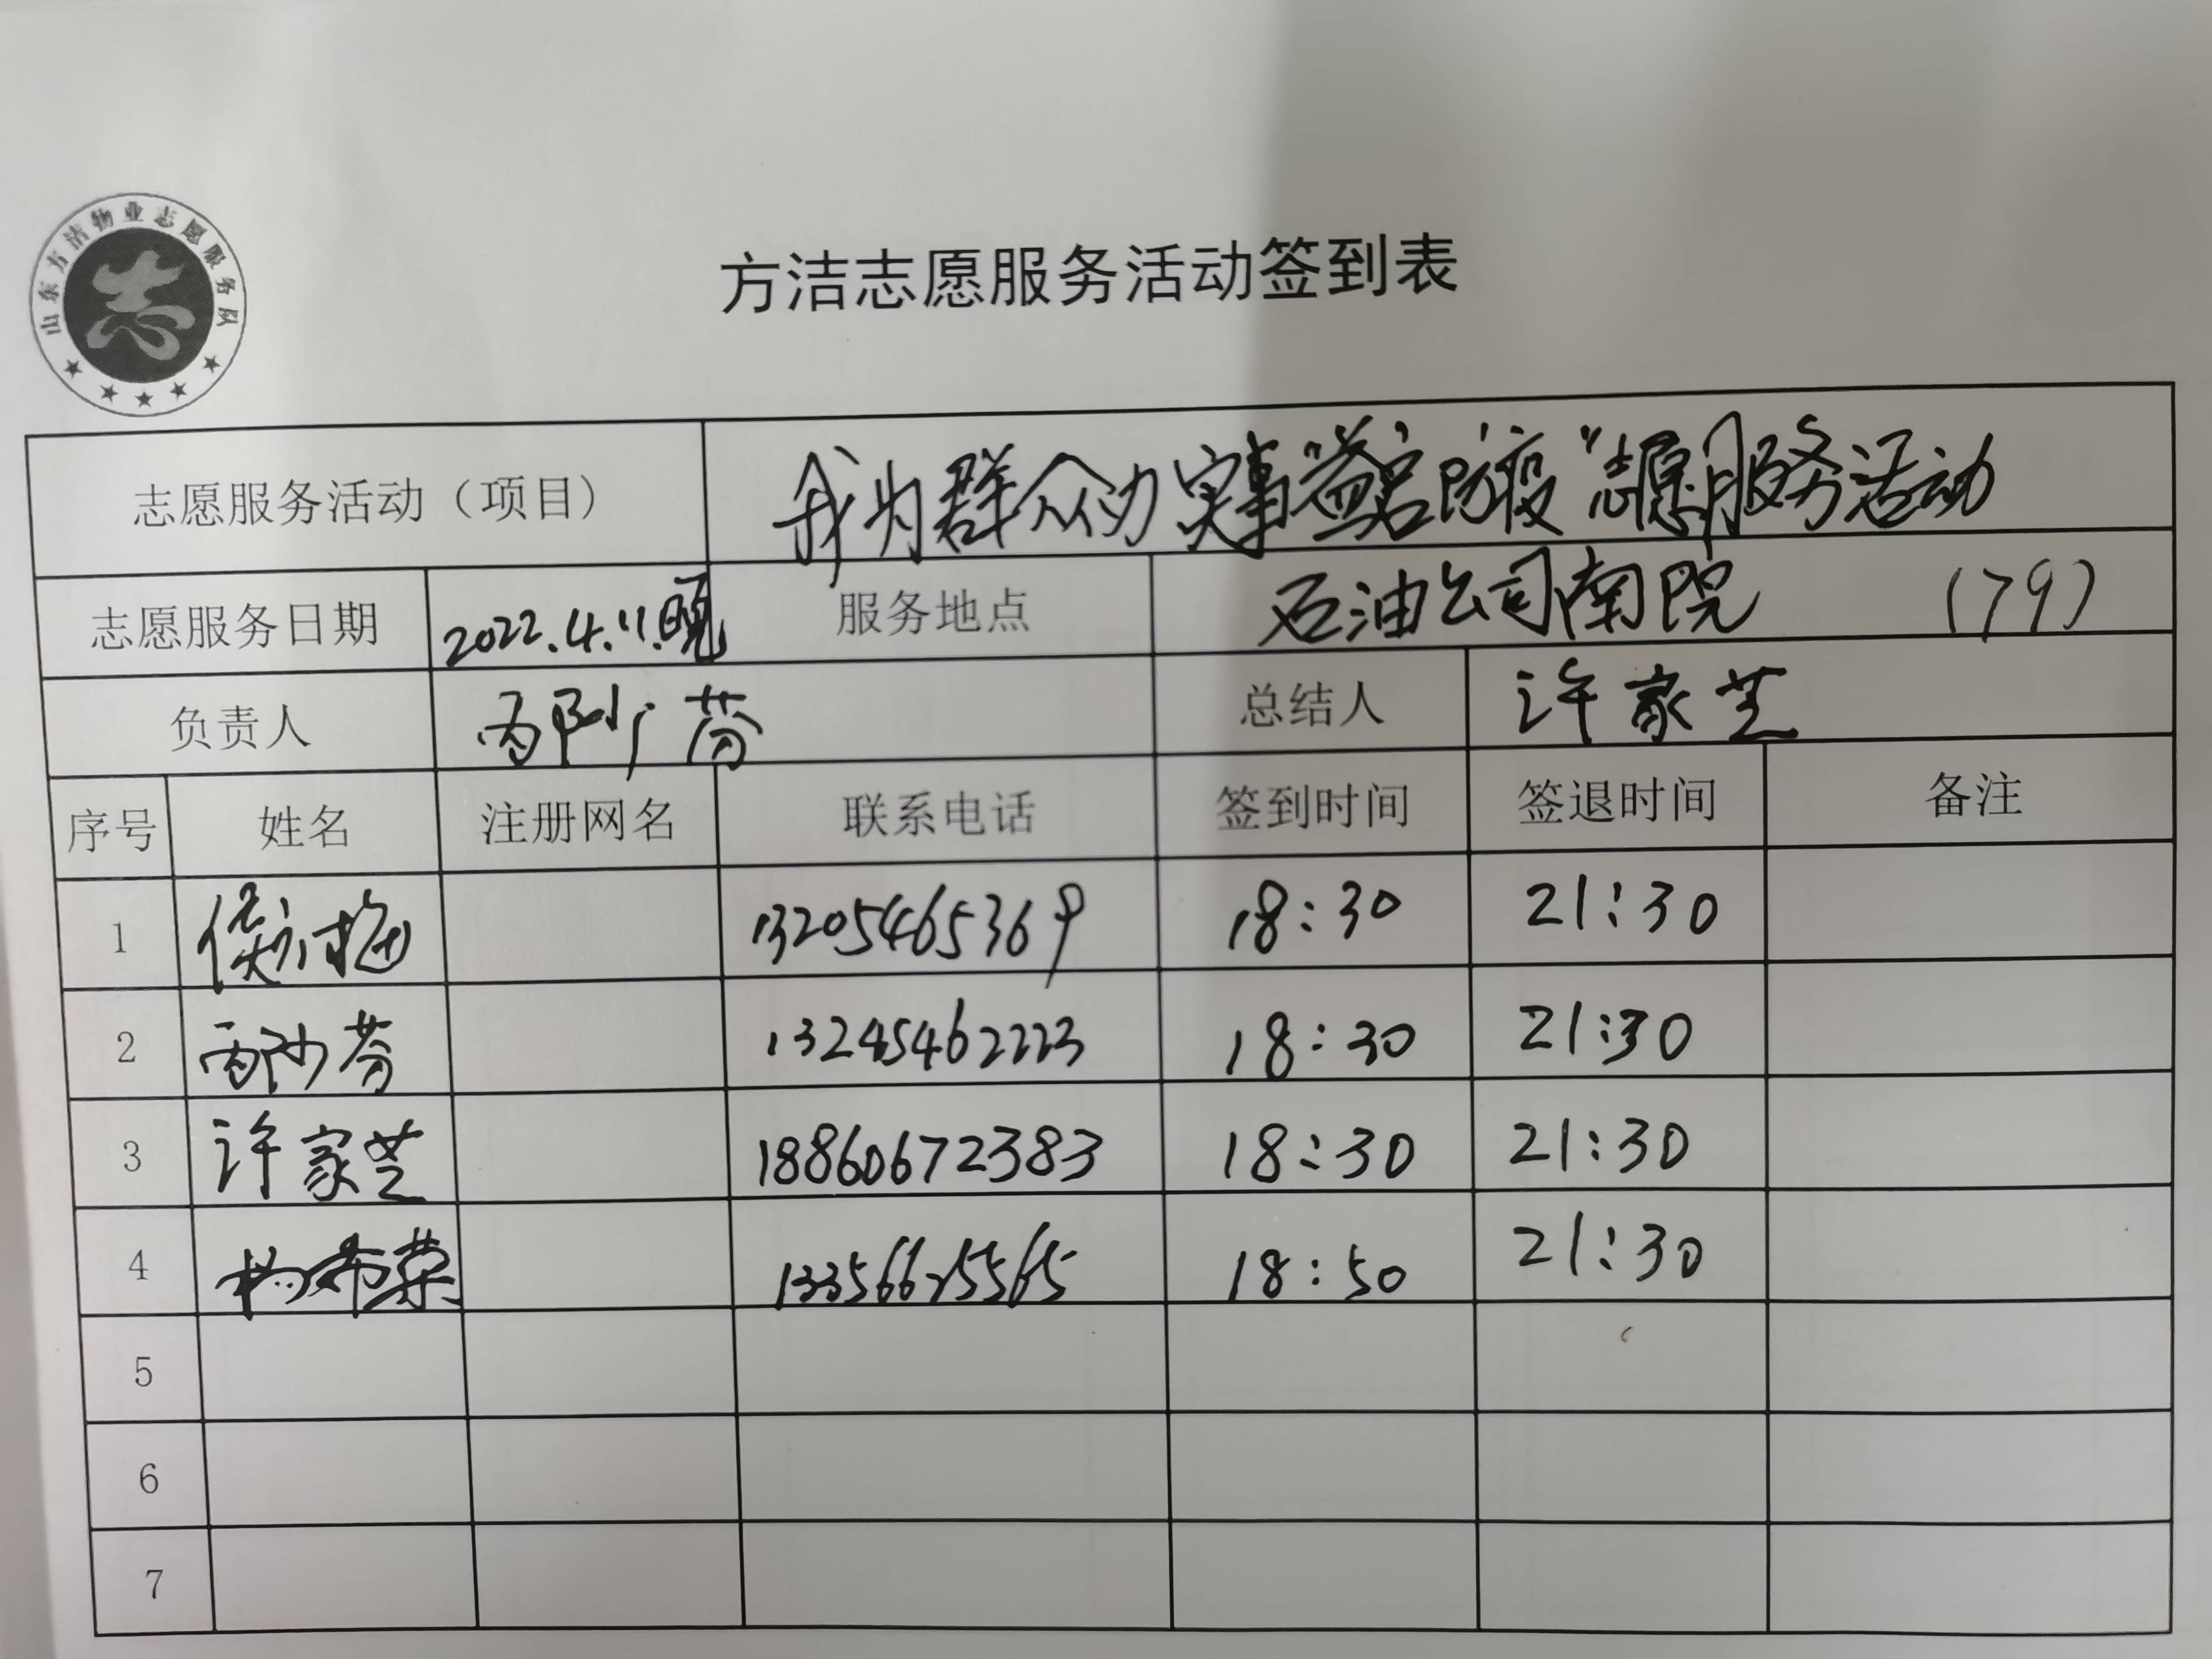 山东方洁物业志愿服务队
志
方洁志愿服务活动签到表
志愿服务活动（项目） 我为群众办实事"防疫"志愿服务活动
志愿服务日期 2022.4.11.晚 服务地点 石油公司南院 (79)
负责人 总结人 许家芝
序号 姓名 注册网名 联系电话 签到时间 签退时间 备注
1 13205465369 18:30 21:30
2 13245462223 18:30 21:30
3 许家芝 18860672383 18:30 21:30
4 18:50 21:30
5
6
7